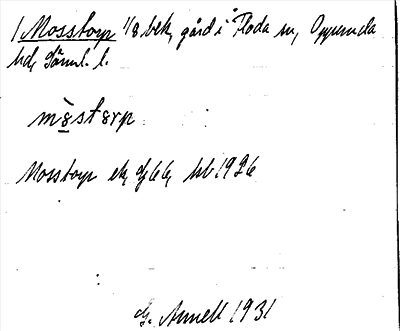 Mosstorp 1/8 bek, gård i Floda sn, Oppunda
hd, Södml. l.
mo̱storp
Mosstorp ek, hb 1926
G. Annell 1931